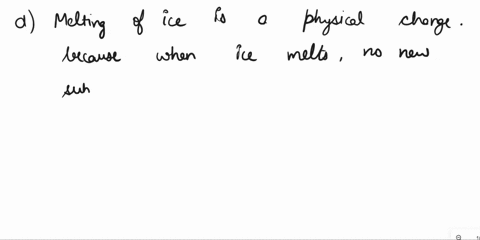 a) Melting of ice is a physical change.
because when ice melts, no new
sub